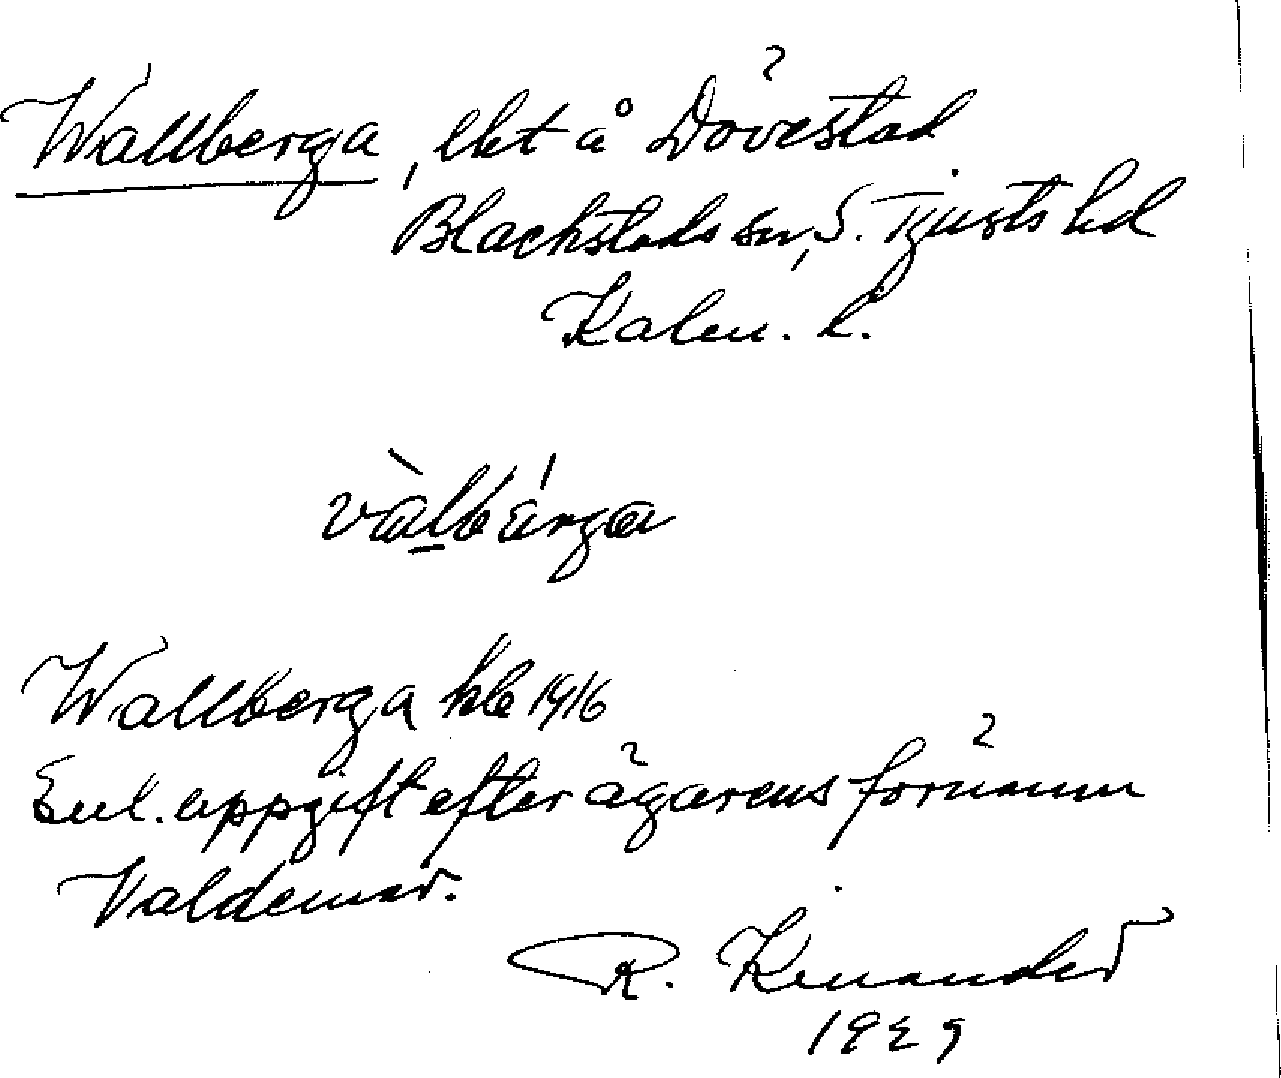 Wallberga, lht å Dövestad
Blackstads sn, S. Tjusts hd
Kalm. l.
vàlbárga
Wallberga kb 1916
Enl. uppgift efter ägarens förnamn
Valdemar.
R. Kenander
1929